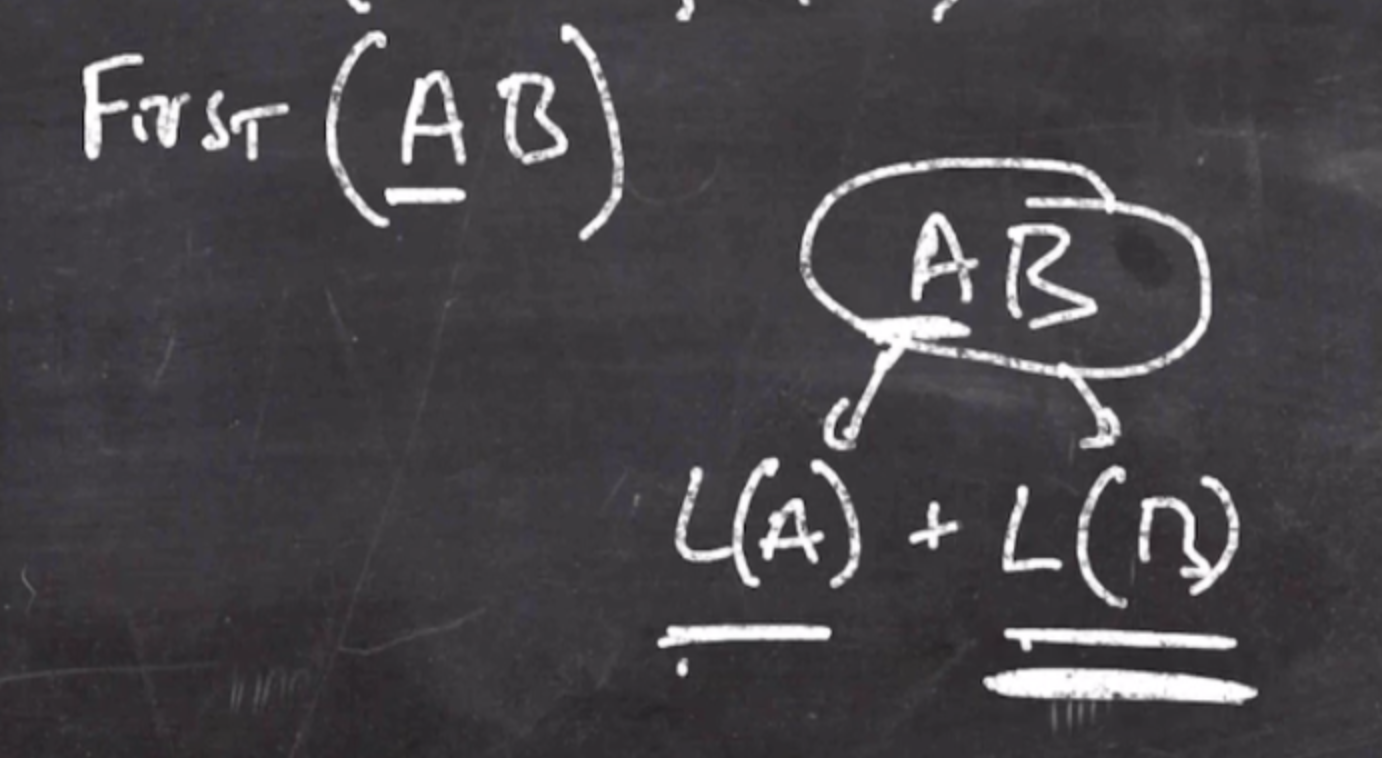 FIRST (A B)
A B
L(A) + L(B)